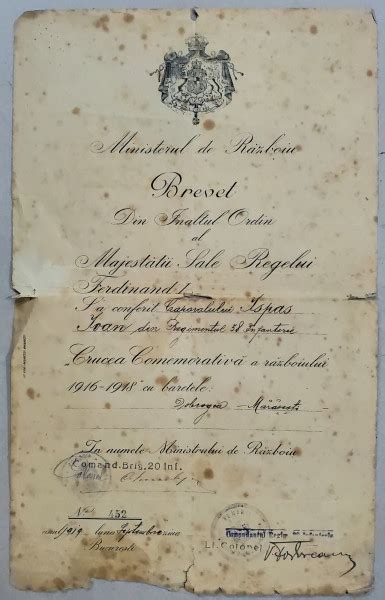 Ministerul de Războiu
Brevet
Din Inaltul Ordin
al
Majestății Sale Regelui
Ferdinand I
S'a conferit Caporalului Ispas
Ioan din Regimentul 38 Infanterie
„Crucea Comemorativă a războiului
1916-1918" cu baretele:
Dobrogea - Mărăsești
In numele Ministrului de Războiu
Comand. Brig. 20 Inf.
No. 452
anul 1919 luna Septembrie ziua
București
Comandantul Regim.
Lt. Colonel